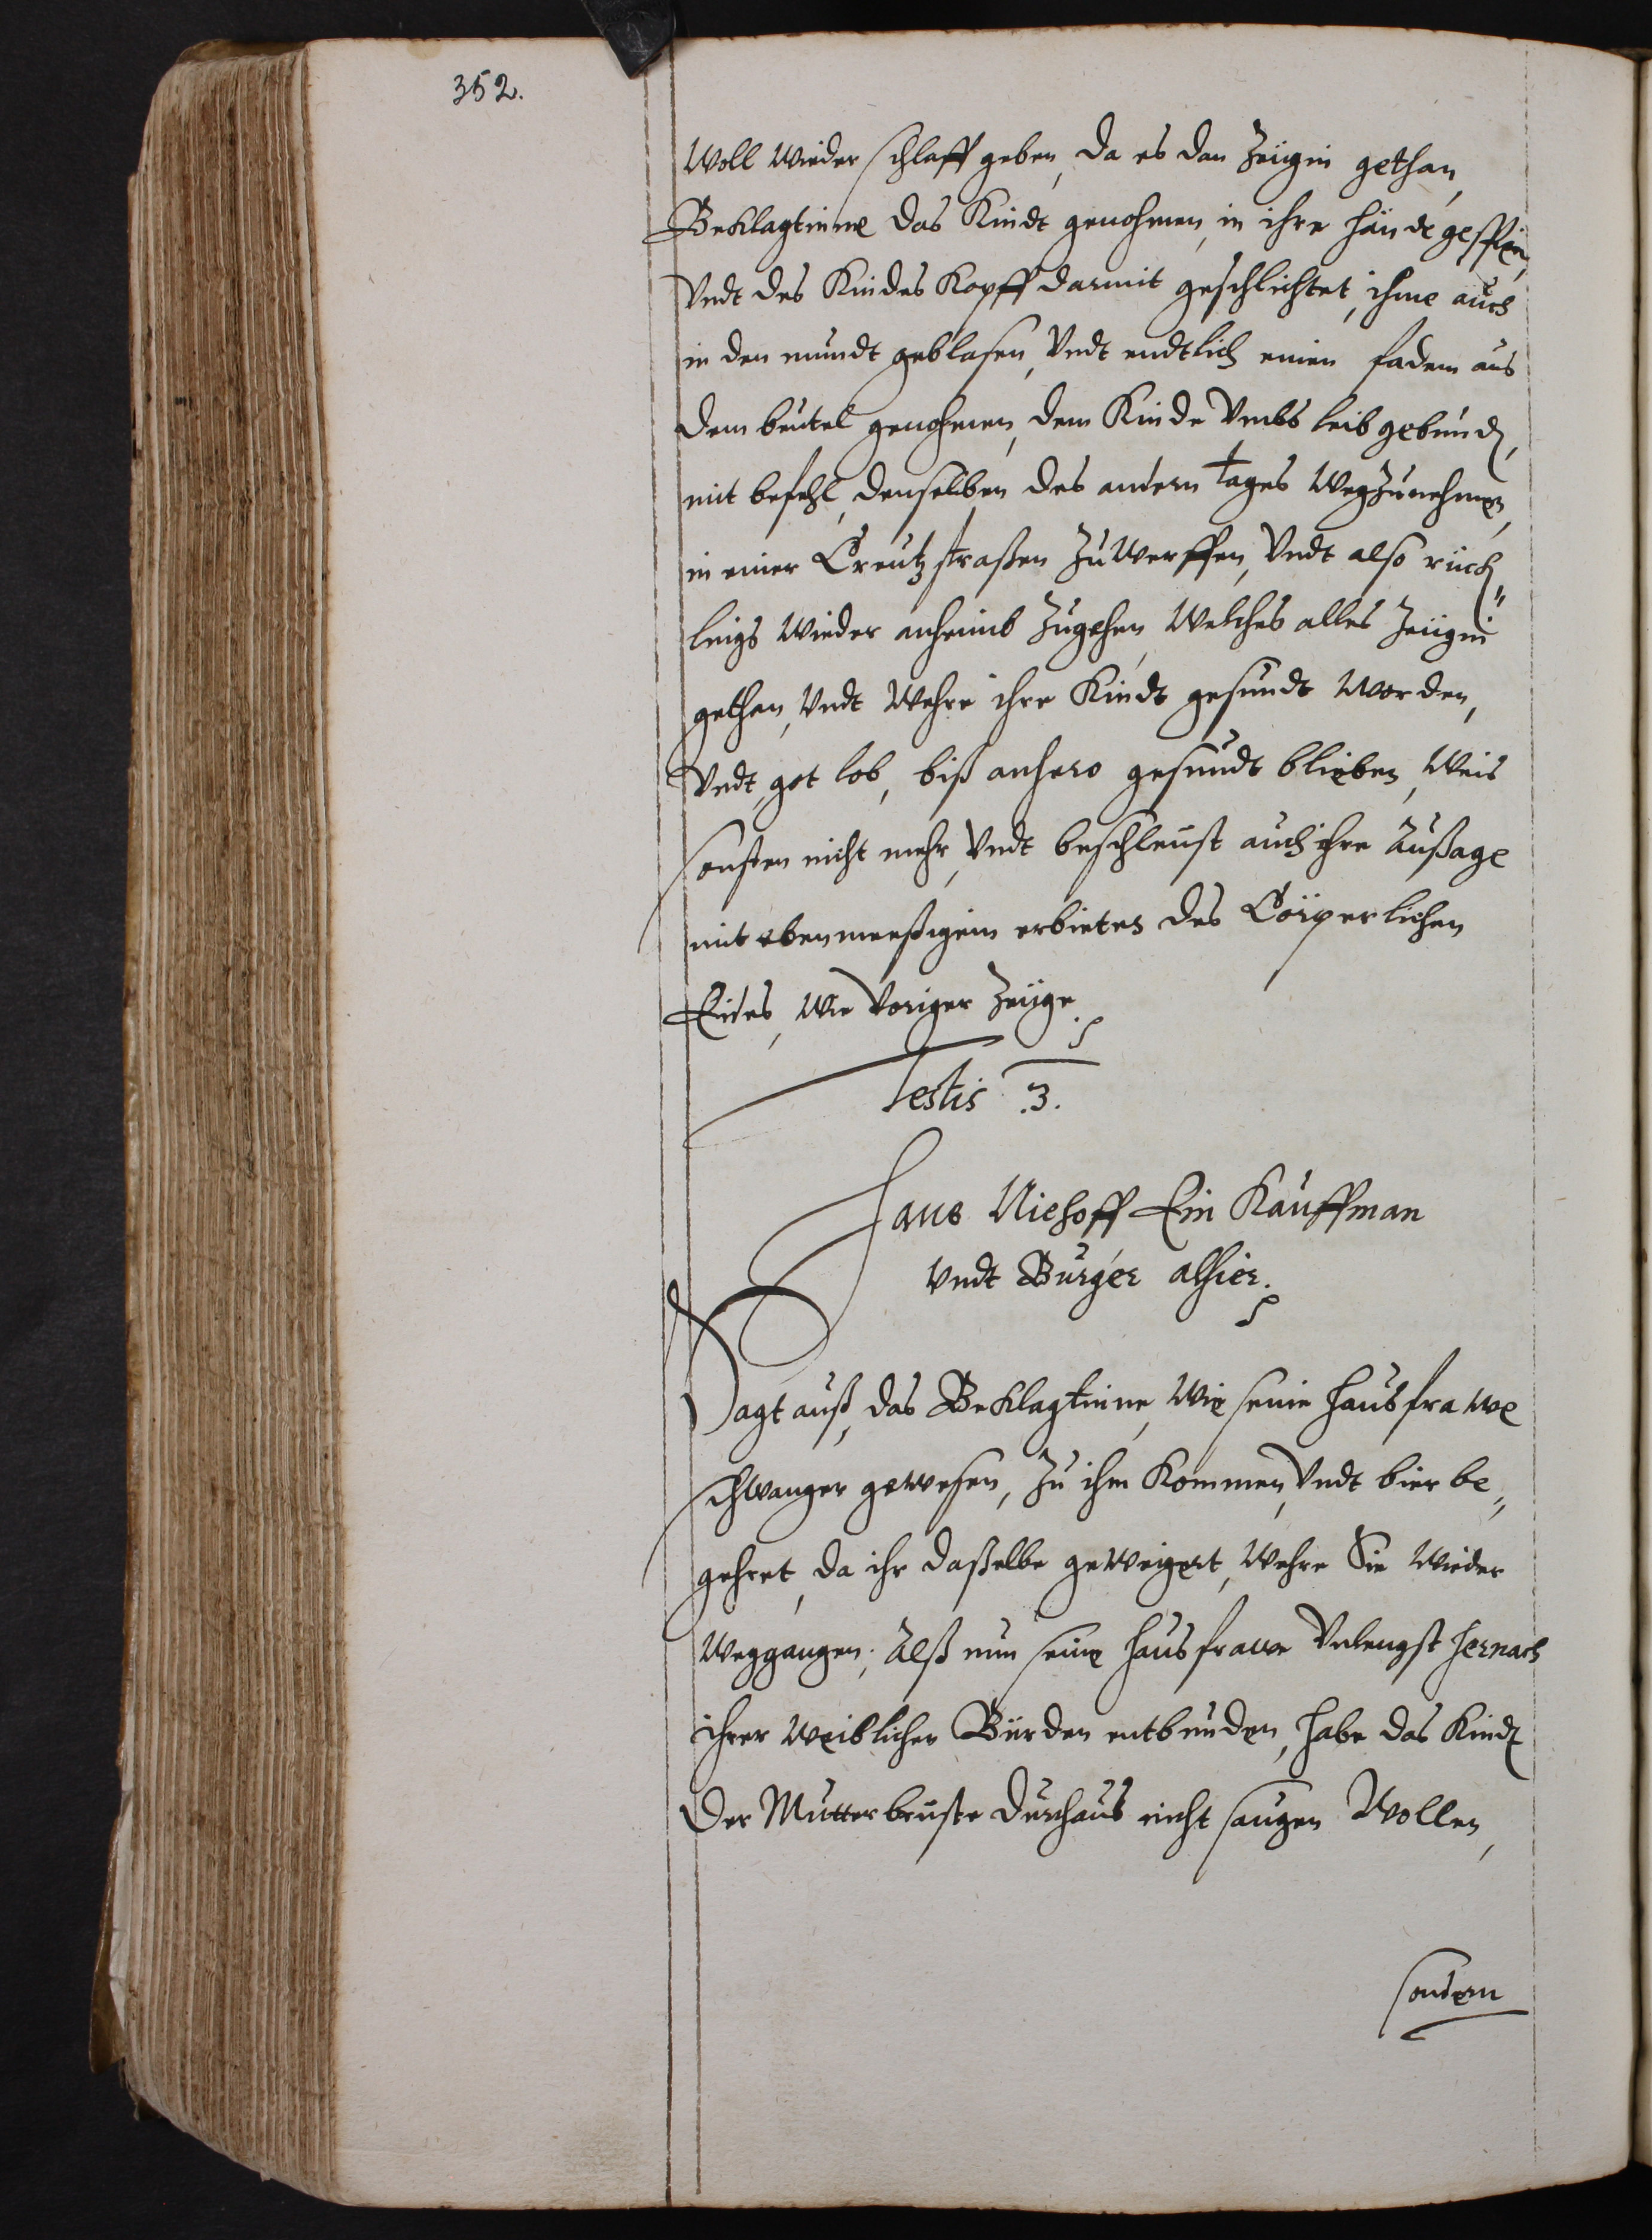 352.
Woll wieder schlaff geben, da es dan Zeugin gethan,
Beklagtinne das Kindt genohmen, in ihre hände gespien,
Vndt des Kindes Kopff darmit geschlichtet, ihme auch
in den mundt geblasen, Vndt endtlich einen fadem aus
dem beutel genohmen, dem Kinde Vmbs leib gebund,
mit befehl, denselben des andern tages Wegzunehmen,
in einer Creutzstraßen zuwerffen, Vndt also rück„
lings wieder anheimb zugehen, Welches alles Zeugin
gethan, Vndt Wehre ihre Kindt gesundt worden,
Vndt, got lob, biß anhero gesundt blieben, Weis
sonsten nicht mehr, Vndt beschleust auch ihre Außage
mit ebenmeeßigem erbieten des Cörperlichen
Eides, Wie Voriger Zeuge.
Testis 3.
Hans Niehoff Ein Kauffman
Vndt Burger alhier.
Sagt auß, das Beklagtinne, Wie seine Hausfrawe
schwanger gewesen, zu ihm kommen, Vndt bier be„
gehret, da ihr daßelbe geweigert, Wehre Sie wieder
Weggangen; Alß nun seine hausfrawe Vnlengst hernach
ihrer weiblichen Bürden entbunden, habe das Kindt
der Mutter bruste durchaus nicht saugen Wollen,
sondern